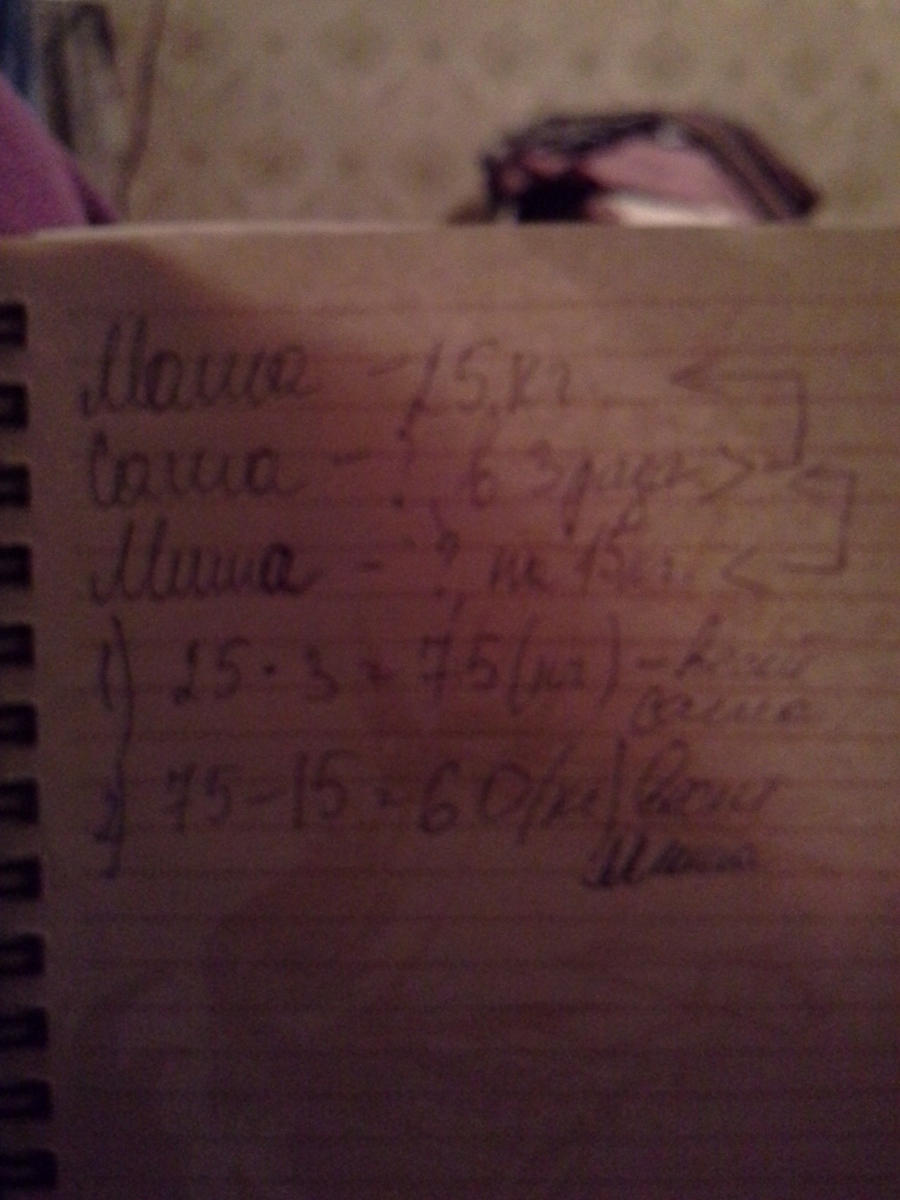 Маша - 25 кг
Саша - ? в 3 раза >
Миша - ? на 15 кг <
1) 25 · 3 = 75 (кг) - весит
Саша
2) 75 - 15 = 60 (кг) весит
Миша